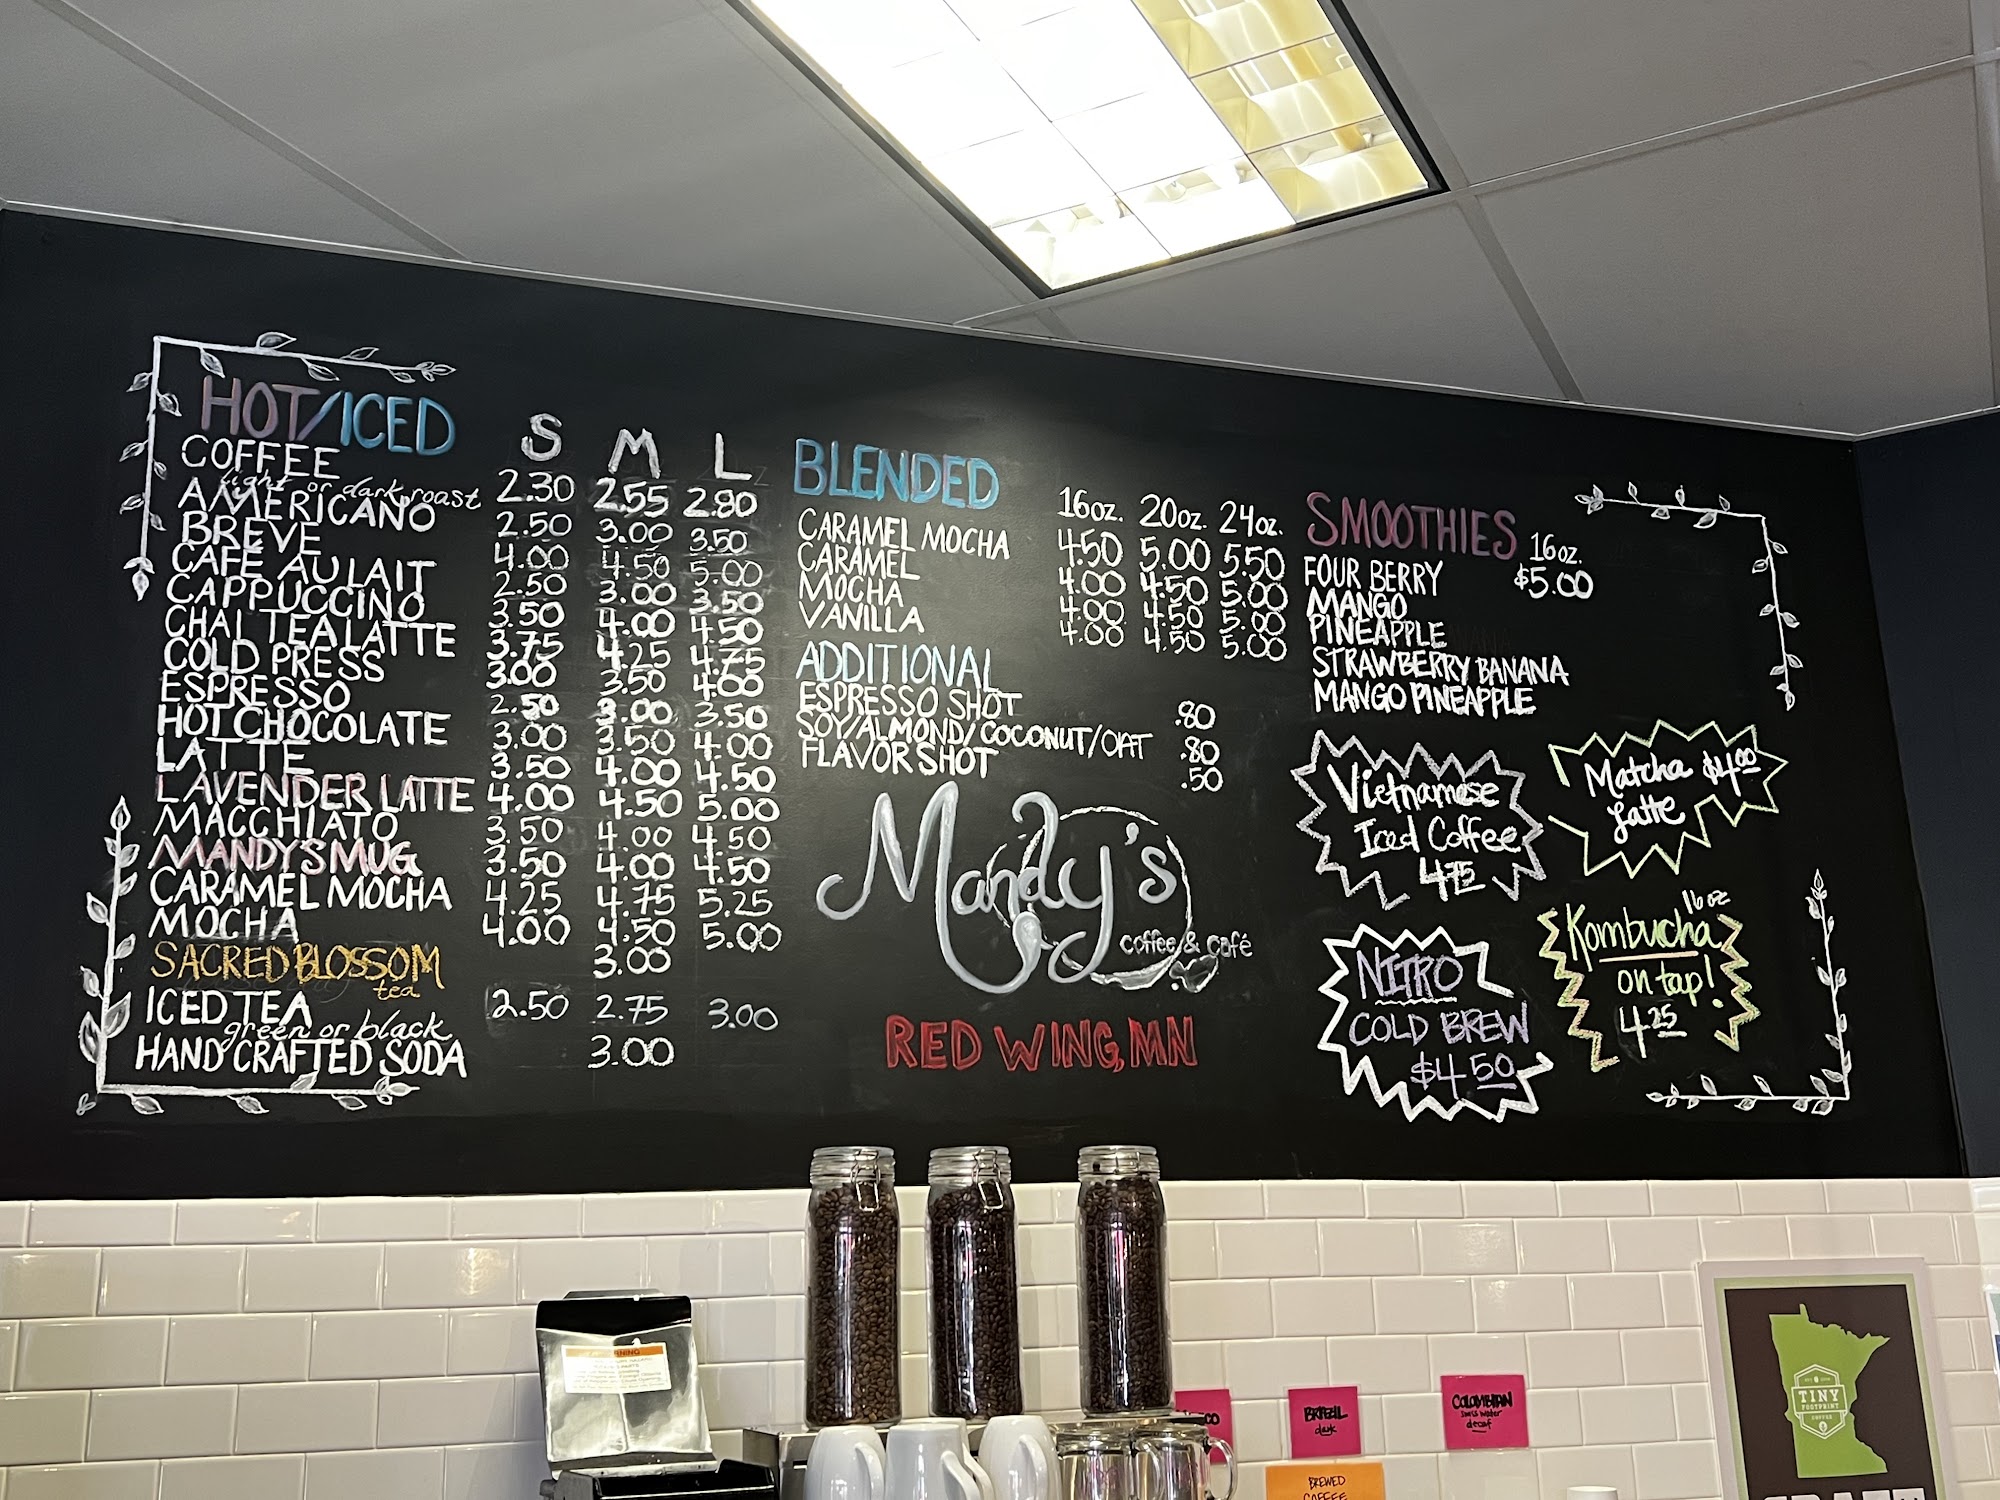 HOT/ICED
S M L
COFFEE 2.30 2.55 2.80
light or dark roast
AMERICANO 2.50 3.00 3.50
BREVE 4.00 4.50 5.00
CAFE AU LAIT 2.50 3.00 3.50
CAPPUCCINO 3.50 4.00 4.50
CHAI TEA LATTE 3.75 4.25 4.75
COLD PRESS 3.00 3.50 4.00
ESPRESSO 2.50 3.00 3.50
HOT CHOCOLATE 3.00 3.50 4.00
LATTE 3.50 4.00 4.50
LAVENDER LATTE 4.00 4.50 5.00
MACCHIATO 3.50 4.00 4.50
MANDY'S MUG 3.50 4.00 4.50
CARAMEL MOCHA 4.25 4.75 5.25
MOCHA 4.00 4.50 5.00
SACRED BLOSSOM 3.00
tea
ICED TEA 2.50 2.75 3.00
green or black
HAND CRAFTED SODA 3.00
BLENDED
16oz. 20oz. 24oz.
CARAMEL MOCHA 4.50 5.00 5.50
CARAMEL 4.00 4.50 5.00
MOCHA 4.00 4.50 5.00
VANILLA 4.00 4.50 5.00
ADDITIONAL
ESPRESSO SHOT .80
SOY/ALMOND/COCONUT/OAT .80
FLAVOR SHOT .50
Mandy's
coffee & café
RED WING, MN
SMOOTHIES 16oz.
FOUR BERRY $5.00
MANGO
PINEAPPLE
STRAWBERRY BANANA
MANGO PINEAPPLE
Vietnamese
Iced Coffee
4.75
Matcha $4.00
Latte
NITRO
COLD BREW
$4.50
Kombucha 16oz
on tap!
4.25
BRAZIL
dark
COLOMBIAN
swiss water
decaf
BREWED
COFFEE
TINY
FOOTPRINT
COFFEE